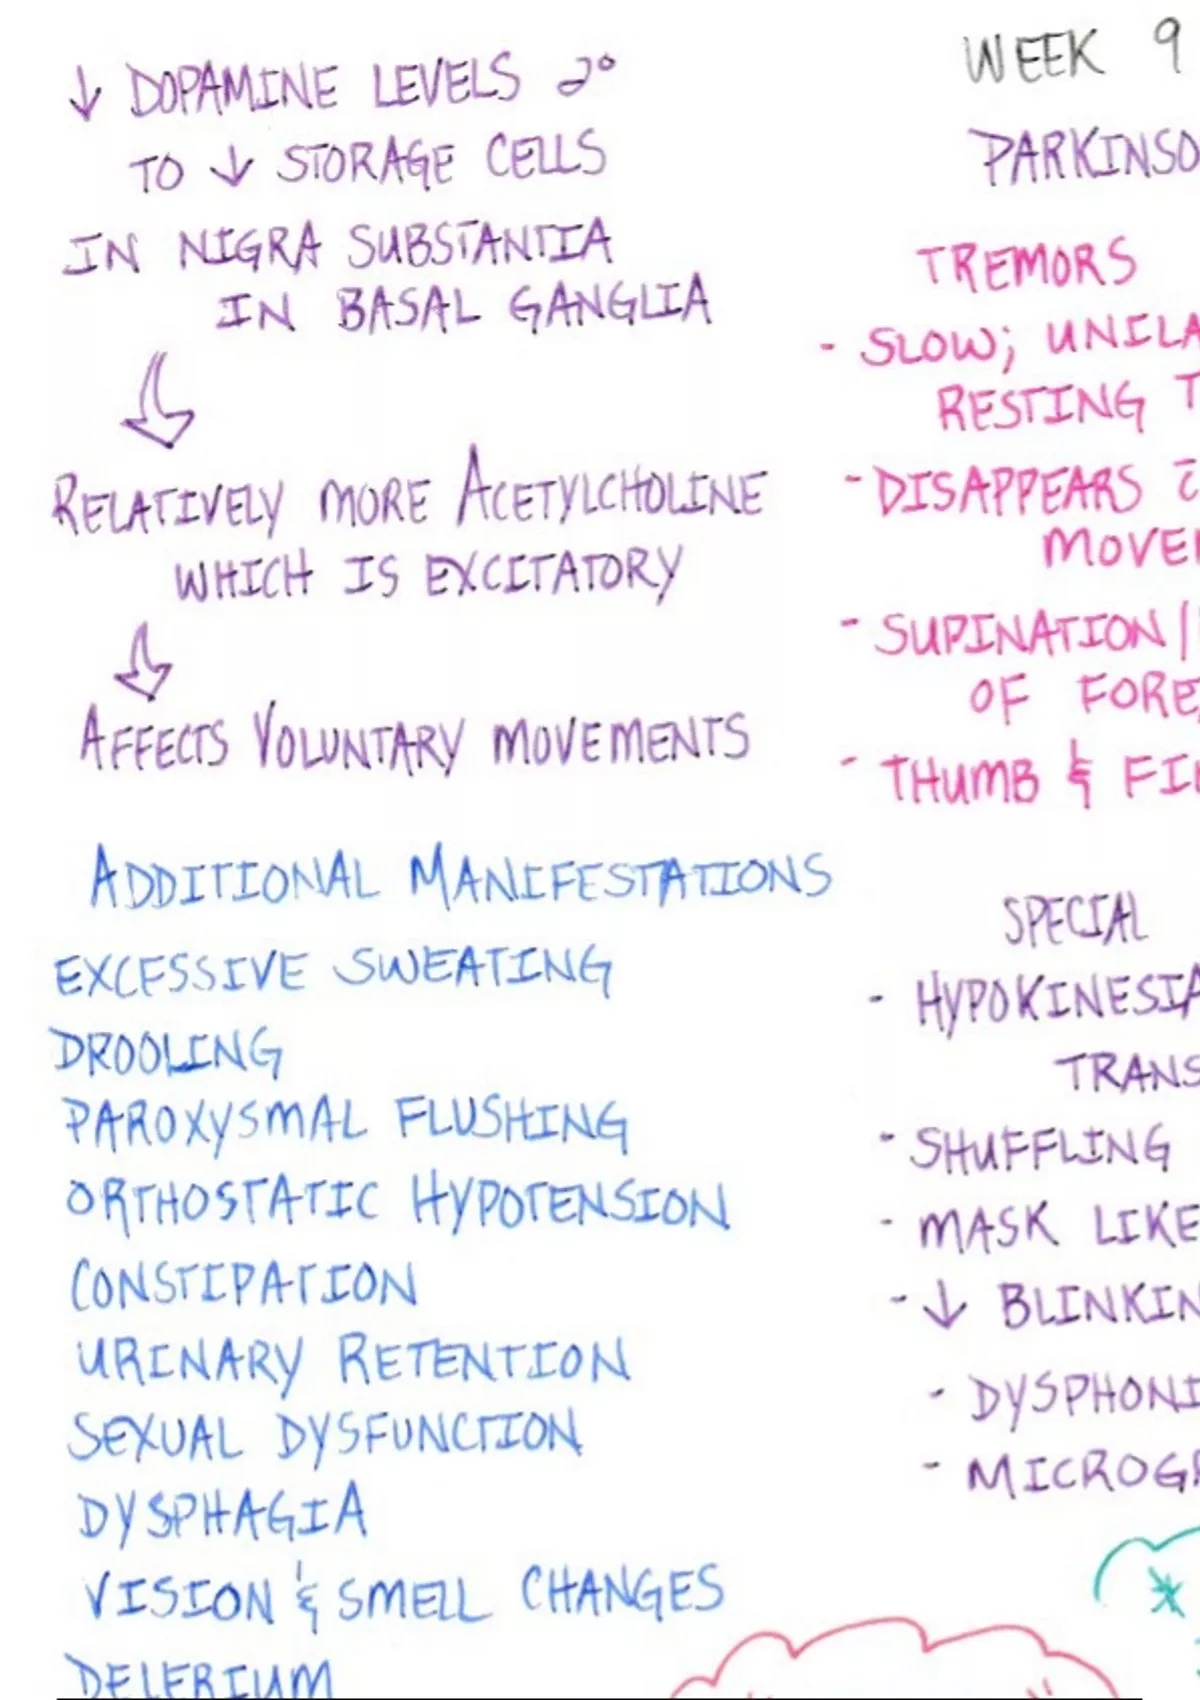 ↓ DOPAMINE LEVELS 2°
TO ↓ STORAGE CELLS
IN NIGRA SUBSTANTIA
IN BASAL GANGLIA
RELATIVELY MORE ACETYLCHOLINE
WHICH IS EXCITATORY
AFFECTS VOLUNTARY MOVEMENTS
ADDITIONAL MANIFESTATIONS
EXCESSIVE SWEATING
DROOLING
PAROXYSMAL FLUSHING
ORTHOSTATIC HYPOTENSION
CONSTIPATION
URINARY RETENTION
SEXUAL DYSFUNCTION
DYSPHAGIA
VISION & SMELL CHANGES
DELERIUM
WEEK 9
PARKINSO
TREMORS
- SLOW; UNILA
RESTING T
- DISAPPEARS c̄
MOVE
- SUPINATION/
OF FORE
- THUMB & FI
SPECIAL
- HYPOKINESIA
TRANS
- SHUFFLING
- MASK LIKE
- ↓ BLINKIN
- DYSPHONI
- MICROGR
*